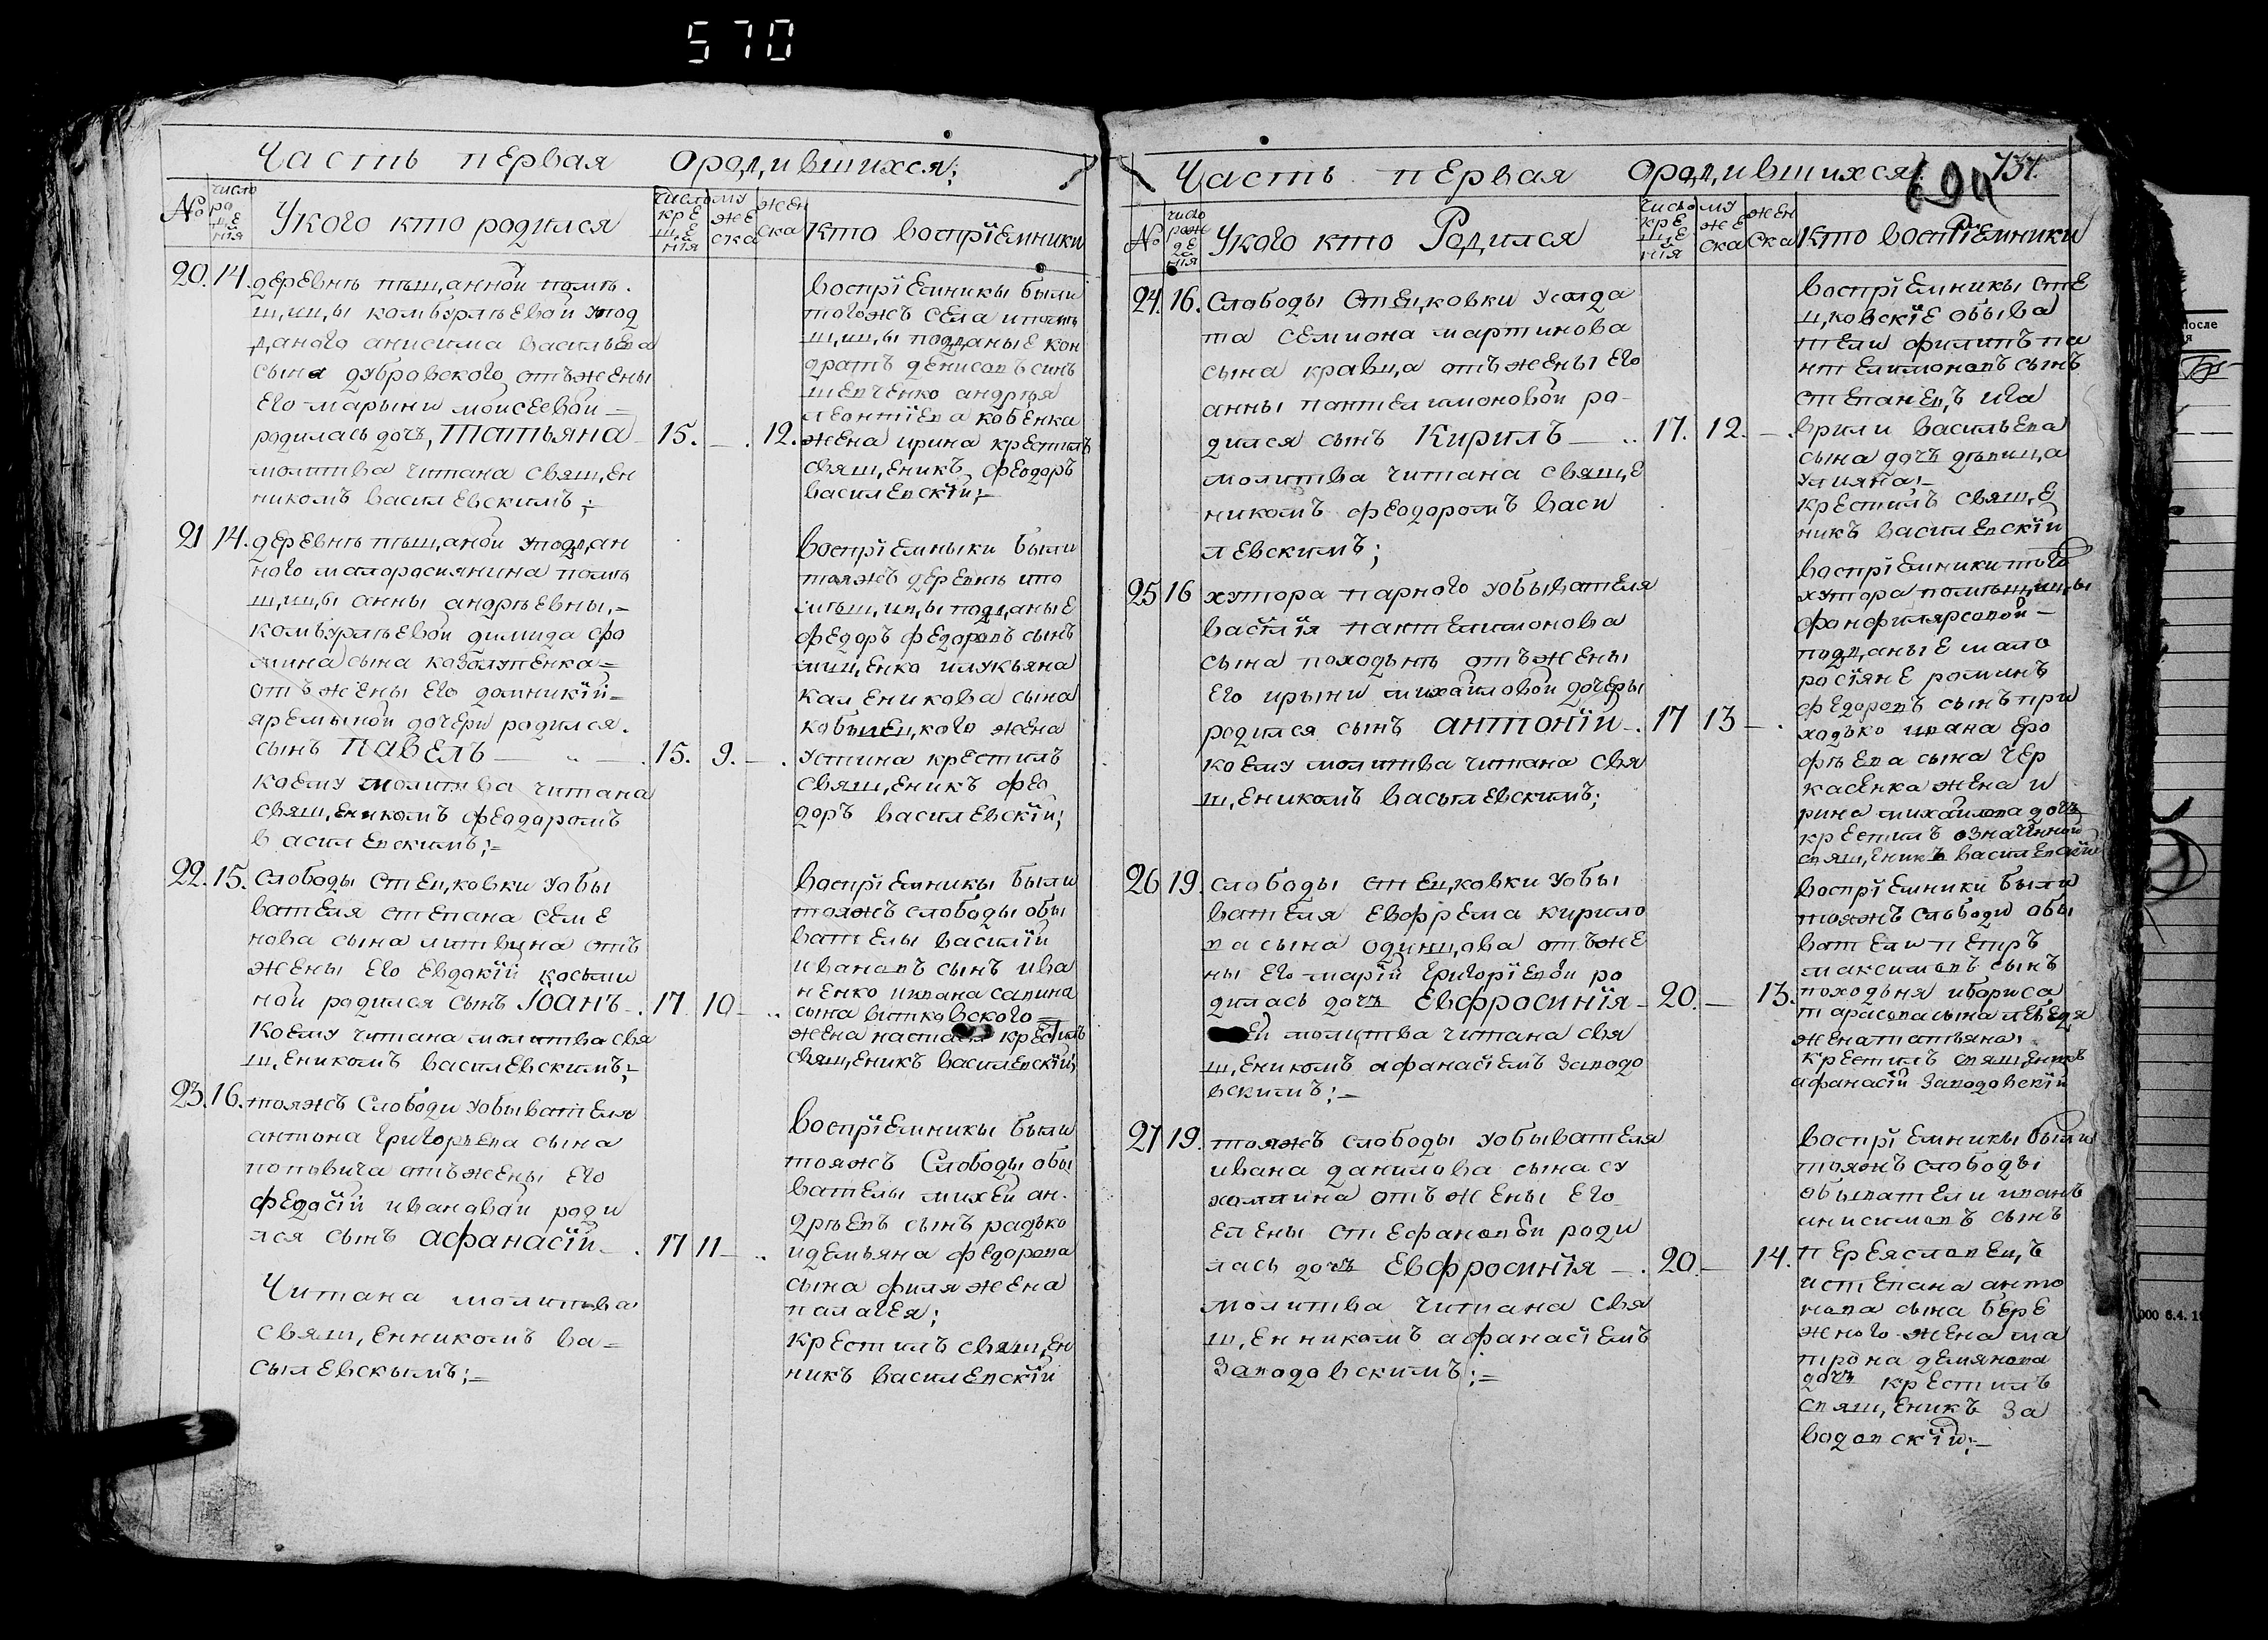 570
Часть первая ородившихся;
№
число ро щ,е нїя
Укого кто родился
число кре щ,е нїя
му же ска
жен ска
кто воспрїемники
20. 14. деревнѣ пѣщ,анной помѣ
щ,иц,ы комбурлѣевой упод
д,аного анисима васильева
сына дубровского отъ жены
его марыни моисеевой =
родилась дочь, Татьяна 15. — 12.
молитва читана свящ,ен
никомъ василевскимъ;
воспрїемникы были
тогожъ села
щ,иц,ы подд,аные кон
дратъ денисовъ синъ
шевченко андрѣя
леонтїева кобенка
жена ирина крестилъ
свящ,еникъ феодоръ
василевскїй;
21 14. деревнѣ пѣщ,аной уподд,ан
ного малоросиянина помѣ
щ,иц,ы анны андрѣевны,
комбурлѣевой димида фо
мина сына козолупенка =
отъ жены его домникїй =
яремыной дочери родился.
сынъ Павелъ — 15. 9. —
коему молитва читана
свящ,еникомъ феодоромъ
василевскимъ; =
воспрїемныки были
тояжъ деревнѣ
подд,аные
федоръ федоровъ сынъ
илукьяна
каленикова сына
жена
устина крестилъ
свящ,еникъ фео
доръ василевскїй;
22. 15. слободы стец,ковки уобы
вателя степана семе
нова сына литвина отъ
жены его евдокїй косьми
ной родился сынъ Iоанъ 17 10
коему читана молитва свя
щ,еникомъ василевскимъ;
воспрїемникы были
тояжъ слободы обы
вателы василїй
ивановъ сынъ ива
ненко ивана савина
сына витковского
жена крестилъ
свящ,еникъ василевскїй;
23. 16. тояжъ слободи уобывателя
антона григорѣева сына
поповича отъ жены его
федосїй ивановой роди
лся сынъ афанасїй 17 11
Читана молитва
свящ,енникомъ ва =
сылевскымъ; =
воспрїемникы были
тояжъ Слободы обы
вателы михей ан
дрѣевъ сынъ радько
идемьяна федорова
сына филя жена
палагея;
крестилъ свящ,ен
никъ василевскїй
Часть первая ородившихся
694
737.
№
число рож де нїя
Укого кто Родился
число кре щ,е нїя
му же ска
жен ска
кто воспрїемники
24. 16. Слободы Стец,ковки усолда
та семиона мартинова
сына кравц,а отъ жены его
анны пантелимоновой ро
дился сынъ Кирилъ — 17. 12.
молитва читана свящ,е
никомъ феодоромъ васи
левскимъ;
воспрїемникы сте
ц,ковскїе обыва
тели филипъ па
нтелимоновъ сынъ
степанец,ъ ига
врили васильева
сына дочь дѣвиц,а
улияна;
крестилъ свящ,е
никъ василевскїй
25 16 хутора парного уобывателя
василїя пантелимонова
сына походънѣ отъ жены
его ирыни михайловой дочеры
родился сынъ антонїй 17 13
коему молитва читана свя
щ,еникомъ васылевскимъ;
воспрїемники того
хутора помѣщ,иц,ы
подд,аные мало
росїяне романъ
федоровъ сынъ при
ходько ивана еро
фѣева сына чер
касенка жена и
рина михайлова дочь
крестилъ означенной
свящ,еникъ василевскїй
26 19. слободы стец,ковки уобы
вателя евфрема кирило
ва сына одинц,ова отъ же
ны его марїй григорїевой ро
дилась дочь Евфросинїя 20. — 13.
ей молитва читана свя
щ,еникомъ афанасїемъ заводо
вскимъ;
воспрїемники были
тояжъ слободи обы
вателы петръ
максимовъ сынъ
походня ибориса
тарасова сына лебедя
жена татьяна;
крестилъ свящ,еникъ
афанасїй заводовскїй
27 19. тояжъ слободы уобывателя
ивана данилова сына су
хомлина отъ жены его
елены стефановой роди
лась дочь Евфросинїя — 20. — 14.
молитва читана свя
щ,енникомъ афанасїемъ
заводовскимъ; =
воспрїемникы были
тояжъ слободы
обыватели иванъ
анисимовъ сынъ
переяславец,ъ
истепана анто
нова сына бере
жного жена ма
трона демянова
дочь крестилъ
свящ,еникъ за
водовскїй;
после
000 6.4.